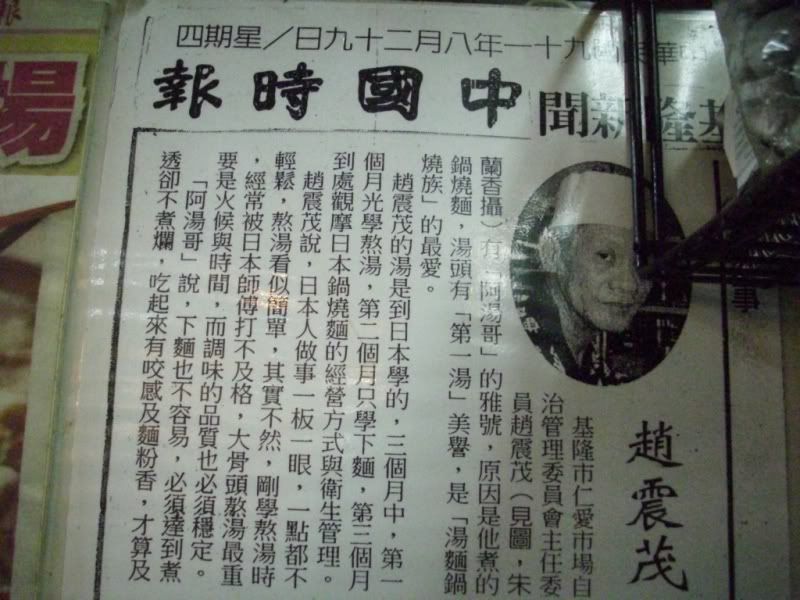 中華民國九十一年八月二十九日／星期四
中國時報
基隆新聞
事
趙震茂
基隆市仁愛市場自
治管理委員會主任委
員趙震茂（見圖，朱
蘭香攝）有「阿湯哥」的雅號，原因是他煮的
鍋燒麵，湯頭有「第一湯」美譽，是「湯麵鍋
燒族」的最愛。
趙震茂的湯是到日本學的，三個月中，第一
個月光學熬湯，第二個月只學下麵，第三個月
到處觀摩日本鍋燒麵的經營方式與衛生管理。
趙震茂說，日本人做事一板一眼，一點都不
輕鬆，熬湯看似簡單，其實不然，剛學熬湯時
，經常被日本師傅打不及格，大骨頭熬湯最重
要是火候與時間，而調味的品質也必須穩定。
「阿湯哥」說，下麵也不容易，必須達到煮
透卻不煮爛，吃起來有咬感及麵粉香，才算及
報
湯